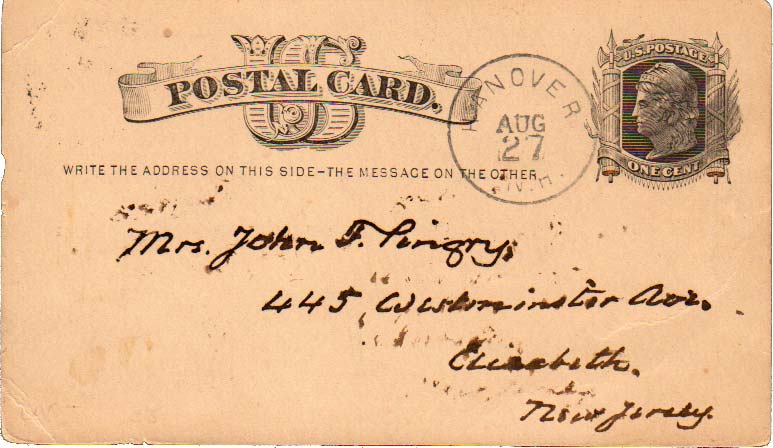 U.S. POSTAGE
US
POSTAL CARD.
ONE CENT
HANOVER
AUG
27
N.H.
WRITE THE ADDRESS ON THIS SIDE–THE MESSAGE ON THE OTHER
Mrs. John F. Pingry,
445 Westminster Ave.
Elizabeth.
New Jersey.